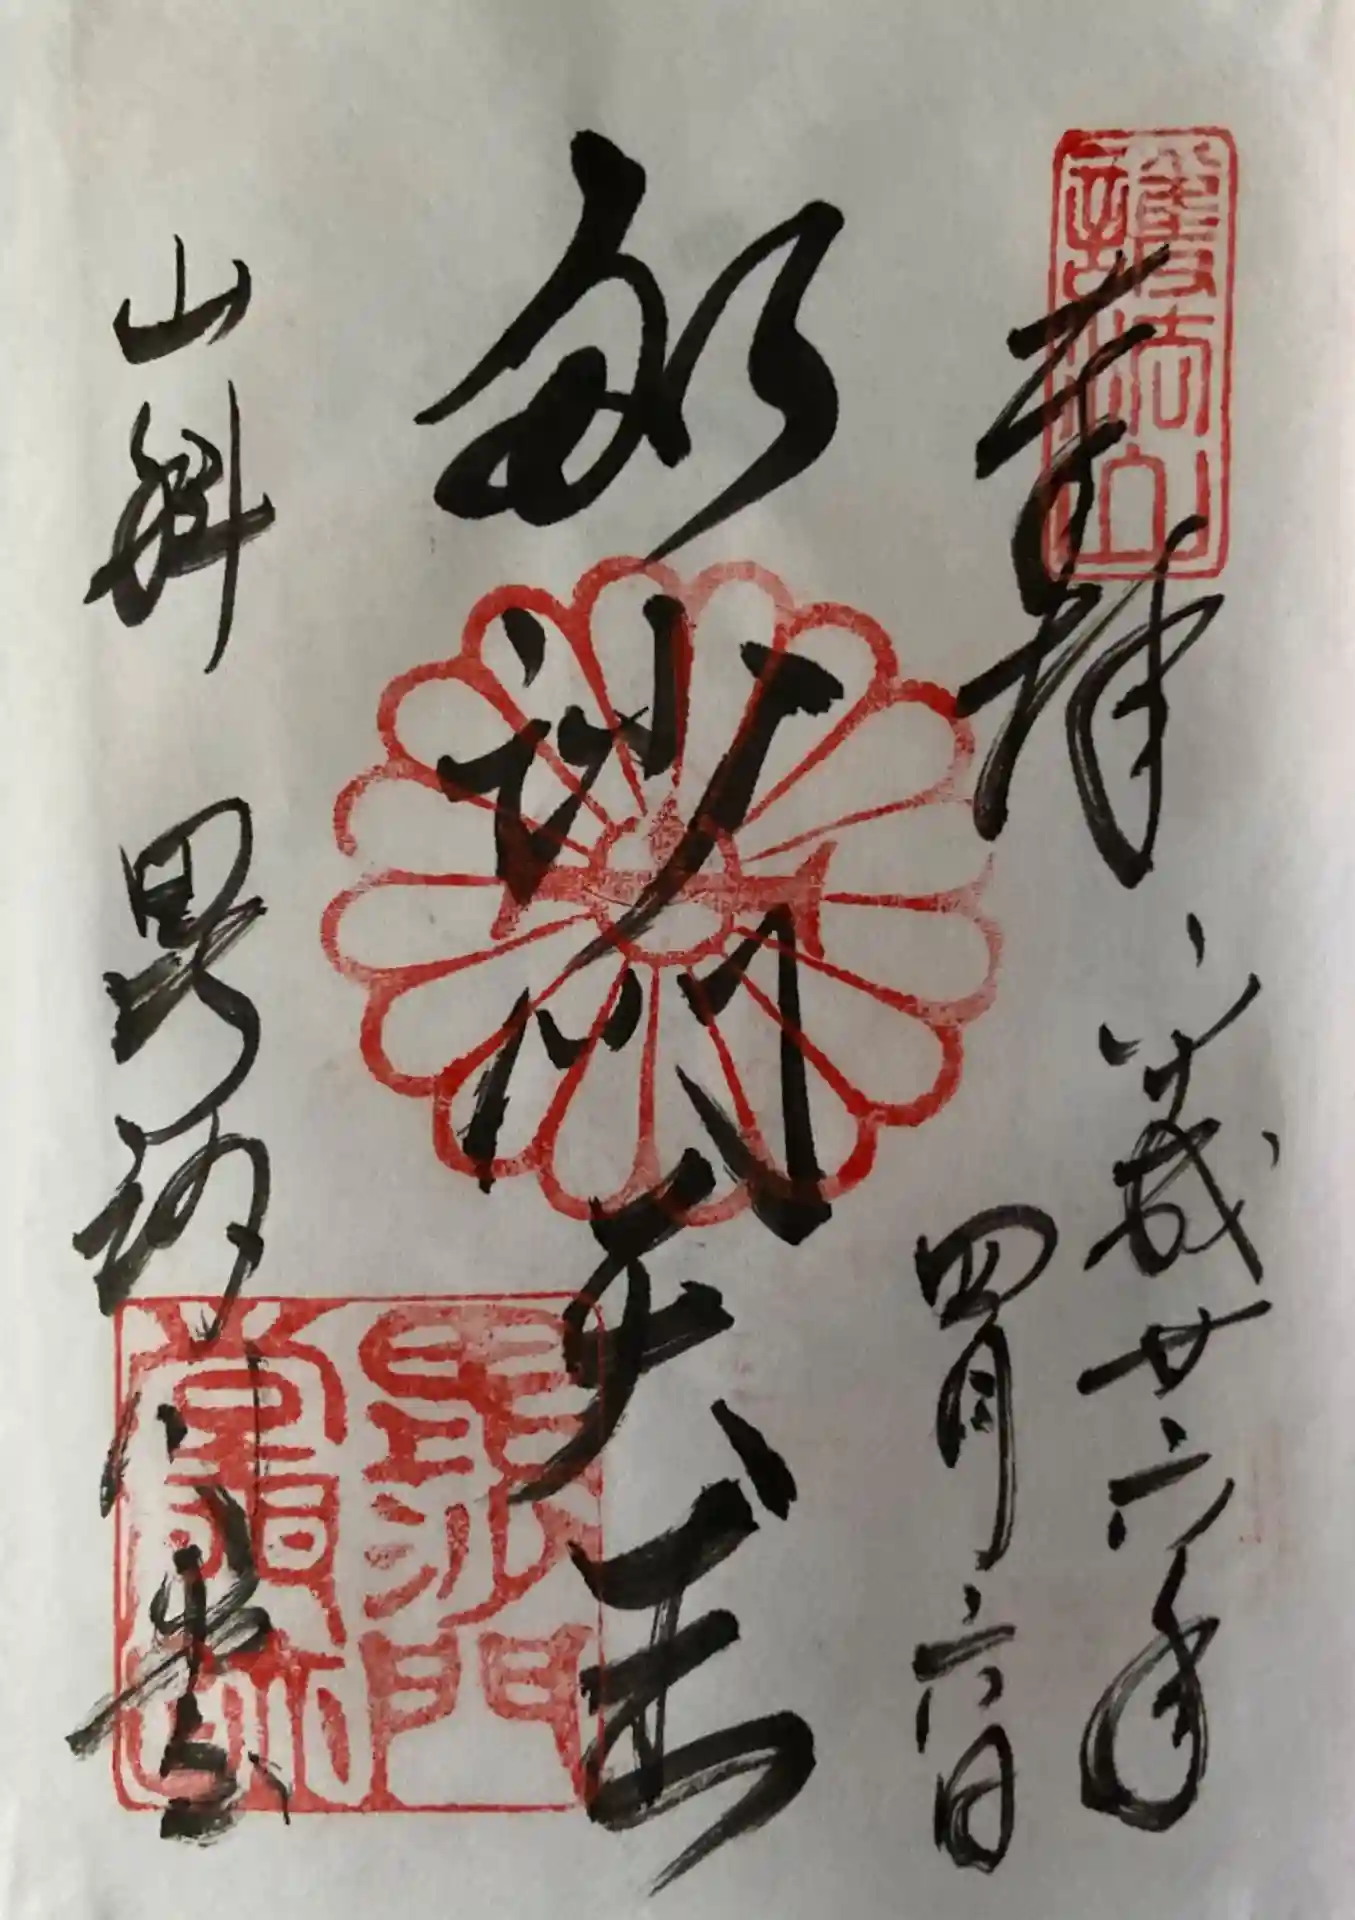 護法山
奉拝
平成廿六年
四月六日
毘沙門天王
山科 毘沙門堂
毘沙門